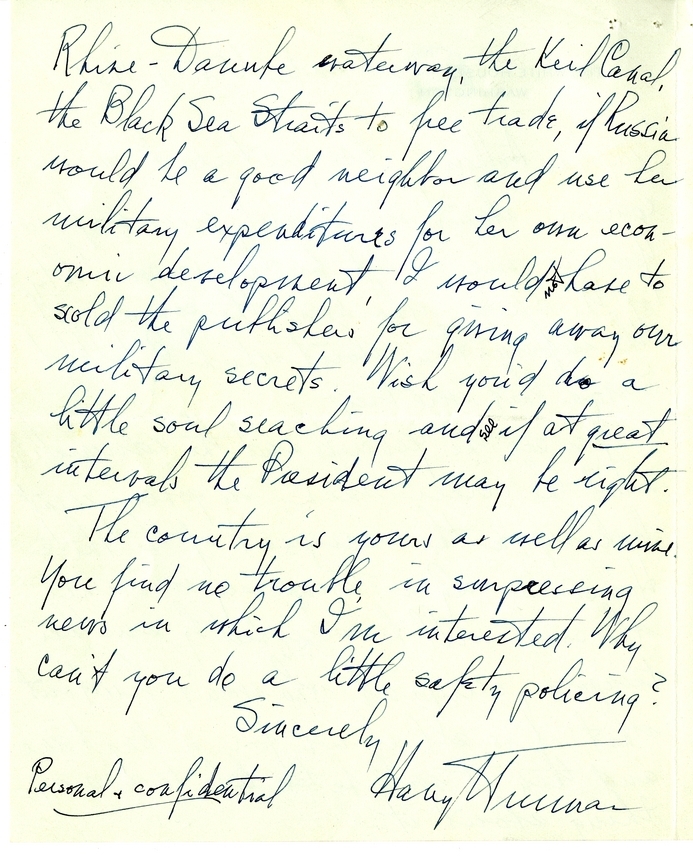 Rhine - Danube waterway, the Keil Canal,
the Black Sea Straits to free trade, if Russia
would be a good neighbor and use her
military expenditures for her own econ-
omic development, I would not have to
scold the publishers for giving away our
military secrets. Wish you'd do a
little soul seaching and see if at great
intervals the President may be right.
The country is yours as well as mine.
You find no trouble in surpressing
news in which I'm interested. Why
can't you do a little safety policing?
Sincerely
Harry Truman
Personal & confidential